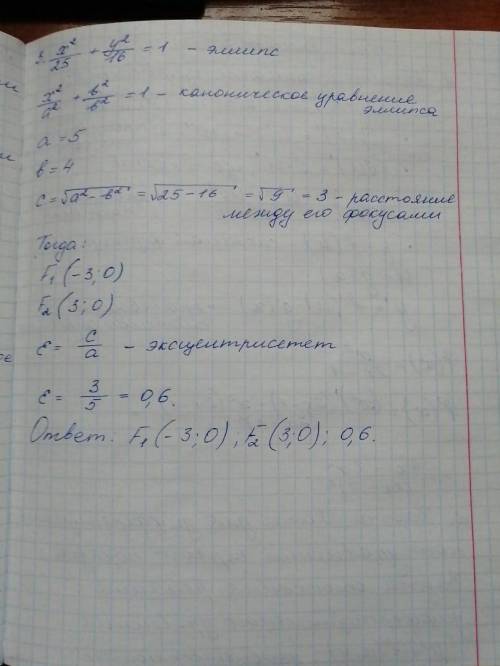 3. x²/25 + y²/16 = 1 - эллипс
x²/a² + в²/в² = 1 - каноническое уравнение
эллипса
a = 5
в = 4
c = √a² - в² = √25 - 16 = √9 = 3 - расстояние
между его фокусами
Тогда:
F₁ (-3; 0)
F₂ (3; 0)
ε = c/a - эксцентриситет
ε = 3/5 = 0,6.
Ответ: F₁ (-3; 0), F₂ (3; 0); 0,6.